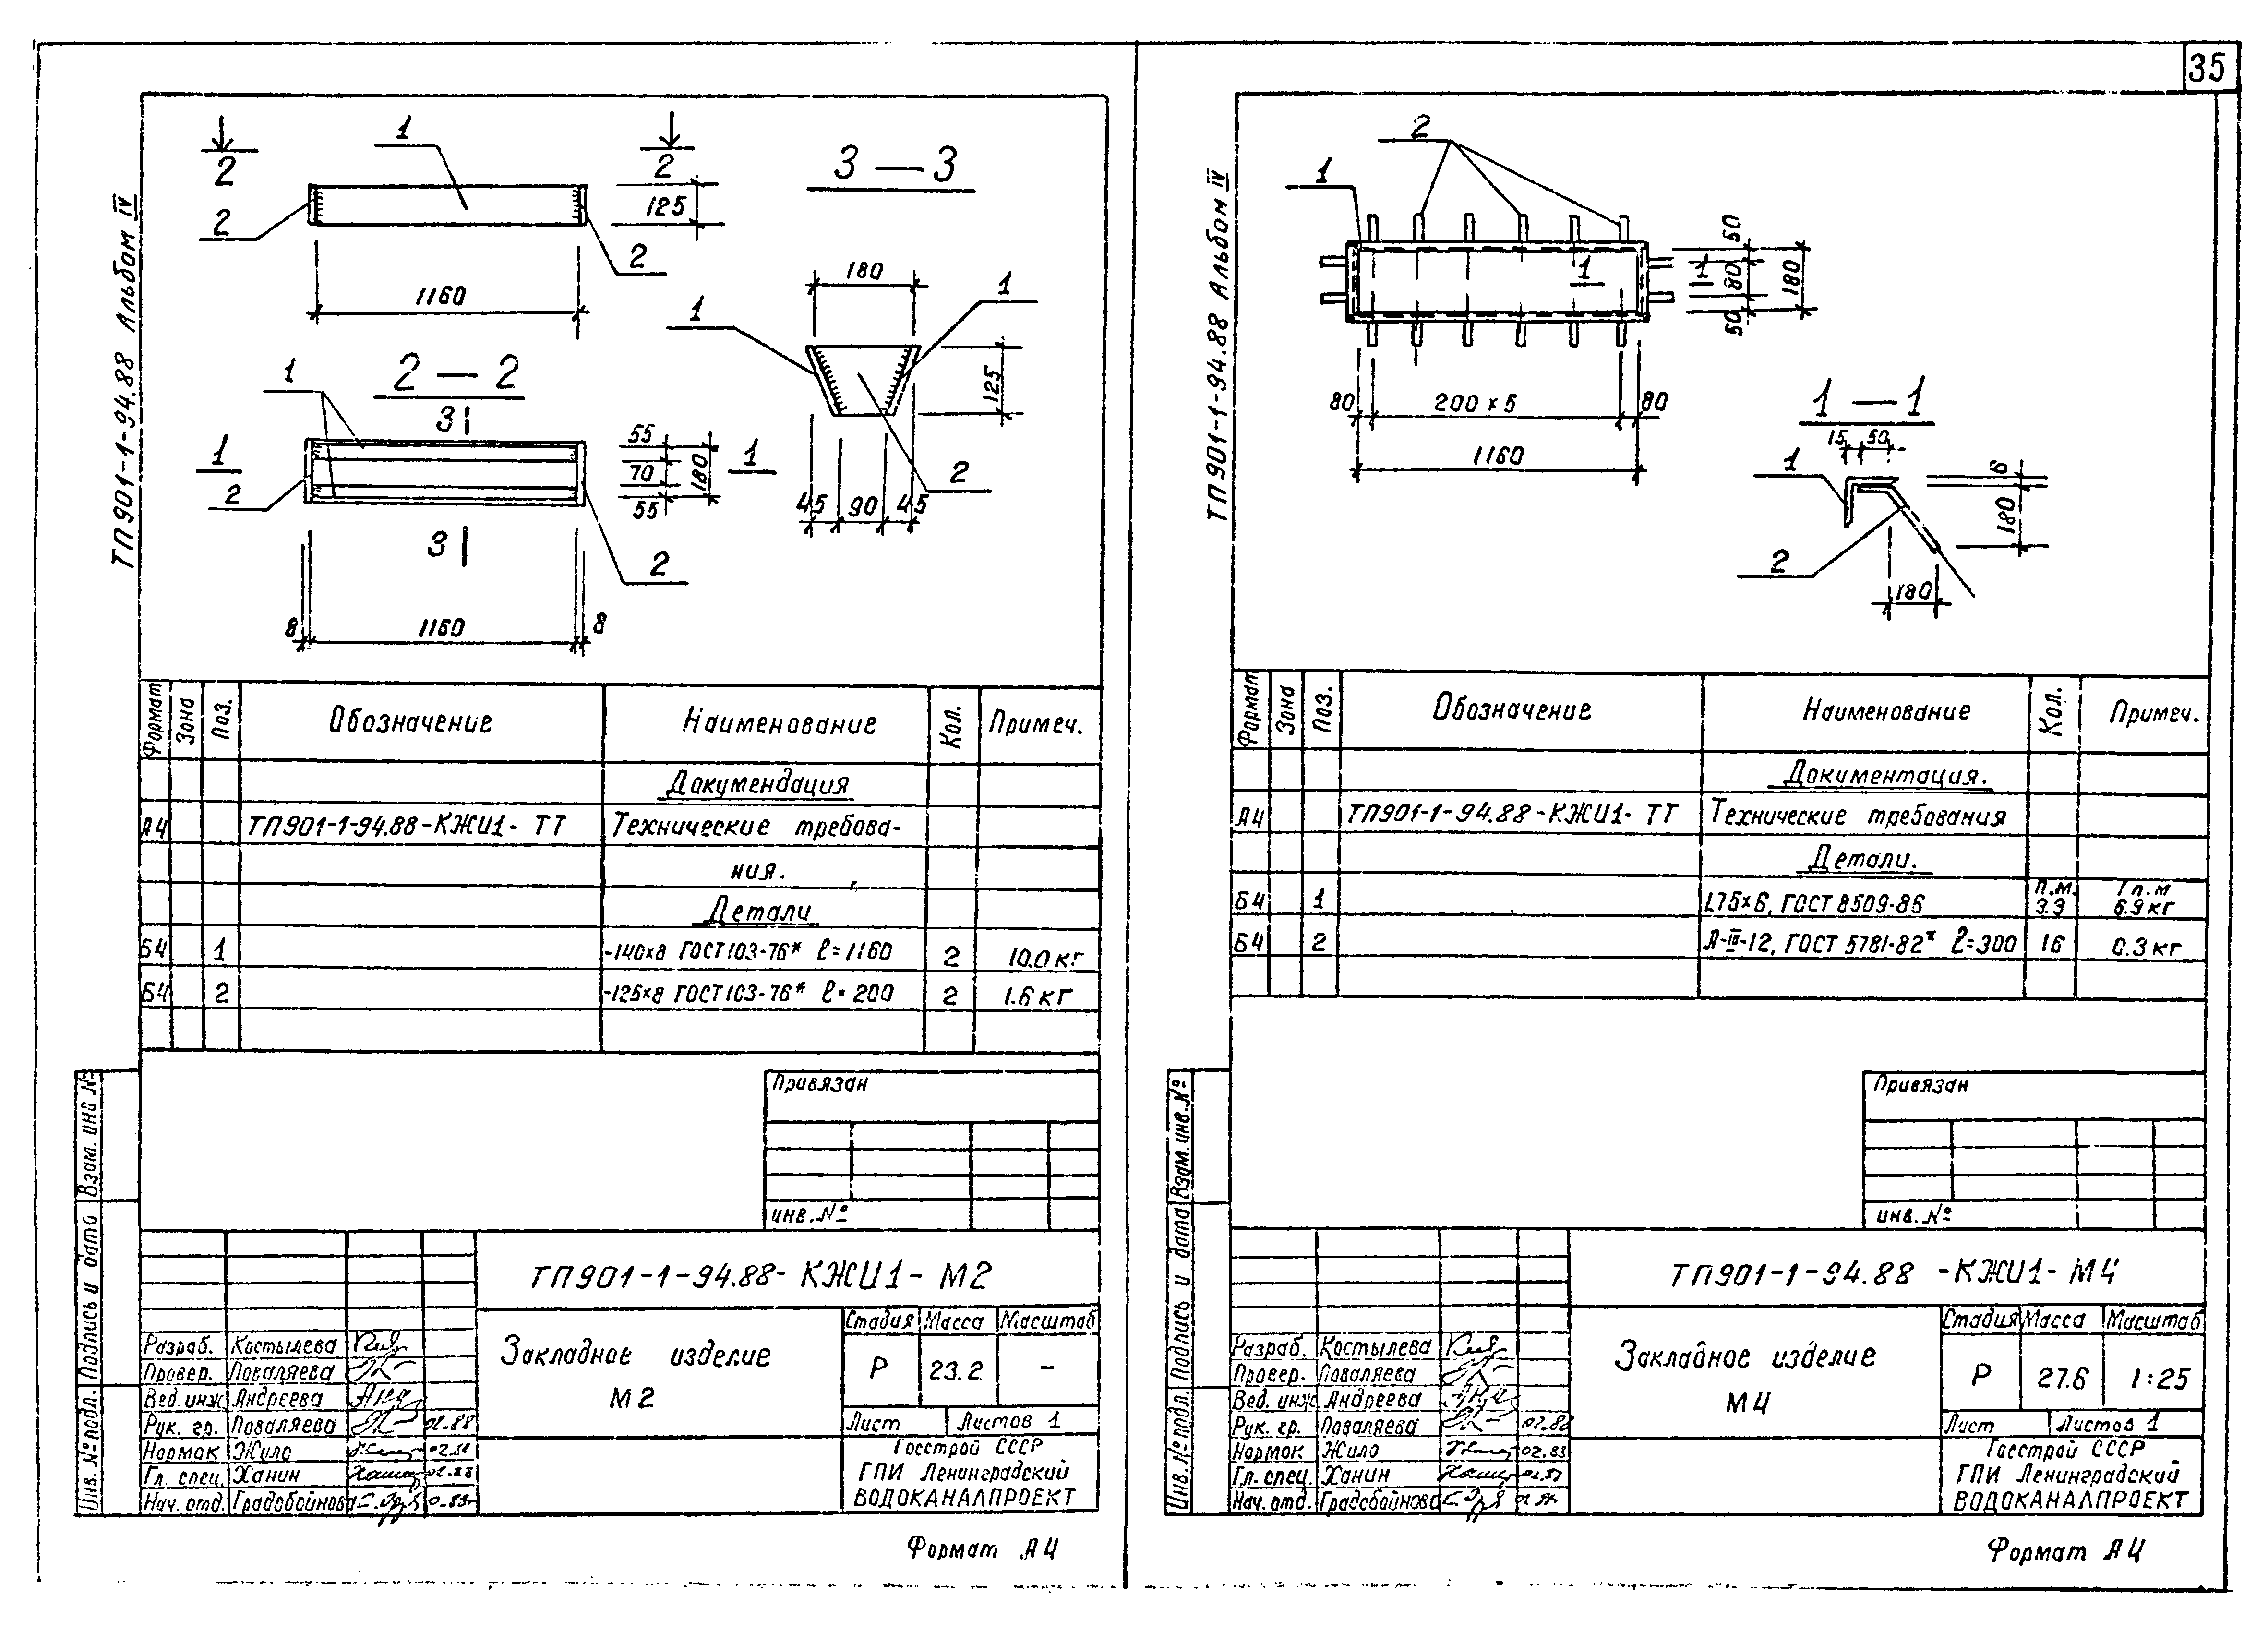 35
ТП901-1-94.88 Альбом IV
2 2
1
2
2
125
1160
2 — 2
1
3
1 1
2
2
3
55
70
55
180
8 1160 8
3 — 3
180
1
1
2
125
45 90 45
Формат Зона Поз. Обозначение Наименование Кол. Примеч.
Докумендация
А4 ТП901-1-94.88-КЖИ1- ТТ Технические требова-
ния.
Детали
Б4 1 -140х8 ГОСТ103-76* ℓ=1160 2 10.0 кг
Б4 2 -125х8 ГОСТ103-76* ℓ=200 2 1.6 кг
Привязан
инв.№
Взам. инв №
Подпись и дата
Инв. № подл.
ТП901-1-94.88- КЖИ1- М2
Закладное изделие
М2
Стадия Масса Масштаб
Р 23.2 –
Лист Листов 1
Госстрой СССР
ГПИ Ленинградский
ВОДОКАНАЛПРОЕКТ
Разраб. Костылева
Провер. Поваляева
Вед. инж. Андреева
Рук. гр. Поваляева 02.88
Нормок Жило
Гл. спец. Ханин 02.88
Нач. отд. Градобойнова
Формат А4
ТП901-1-94.88 Альбом IV
2
1
1 1
50
80
50
180
80 200 х 5 80
1160
1 — 1
15 50
1
2
6
180
180
Формат Зона Поз. Обозначение Наименование Кол. Примеч.
Документация.
А4 ТП901-1-94.88-КЖИ1- ТТ Технические требования
Детали.
Б4 1 L75х6, ГОСТ 8509-86 п.м. 3.3 1 п.м 6.9 кг
Б4 2 А-III-12, ГОСТ 5781-82* ℓ=300 16 0.3 кг
Привязан
инв.№
Взам. инв.№
Подпись и дата
Инв. № подл.
ТП901-1-94.88 -КЖИ1- М4
Закладное изделие
М4
Стадия Масса Масштаб
Р 27.6 1:25
Лист Листов 1
Госстрой СССР
ГПИ Ленинградский
ВОДОКАНАЛПРОЕКТ
Разраб. Костылева
Провер. Поваляева
Вед. инж Андреева
Рук. гр. Поваляева 02.88
Нормок Жило
Гл. спец. Ханин
Нач. отд. Градобойнова
Формат А4